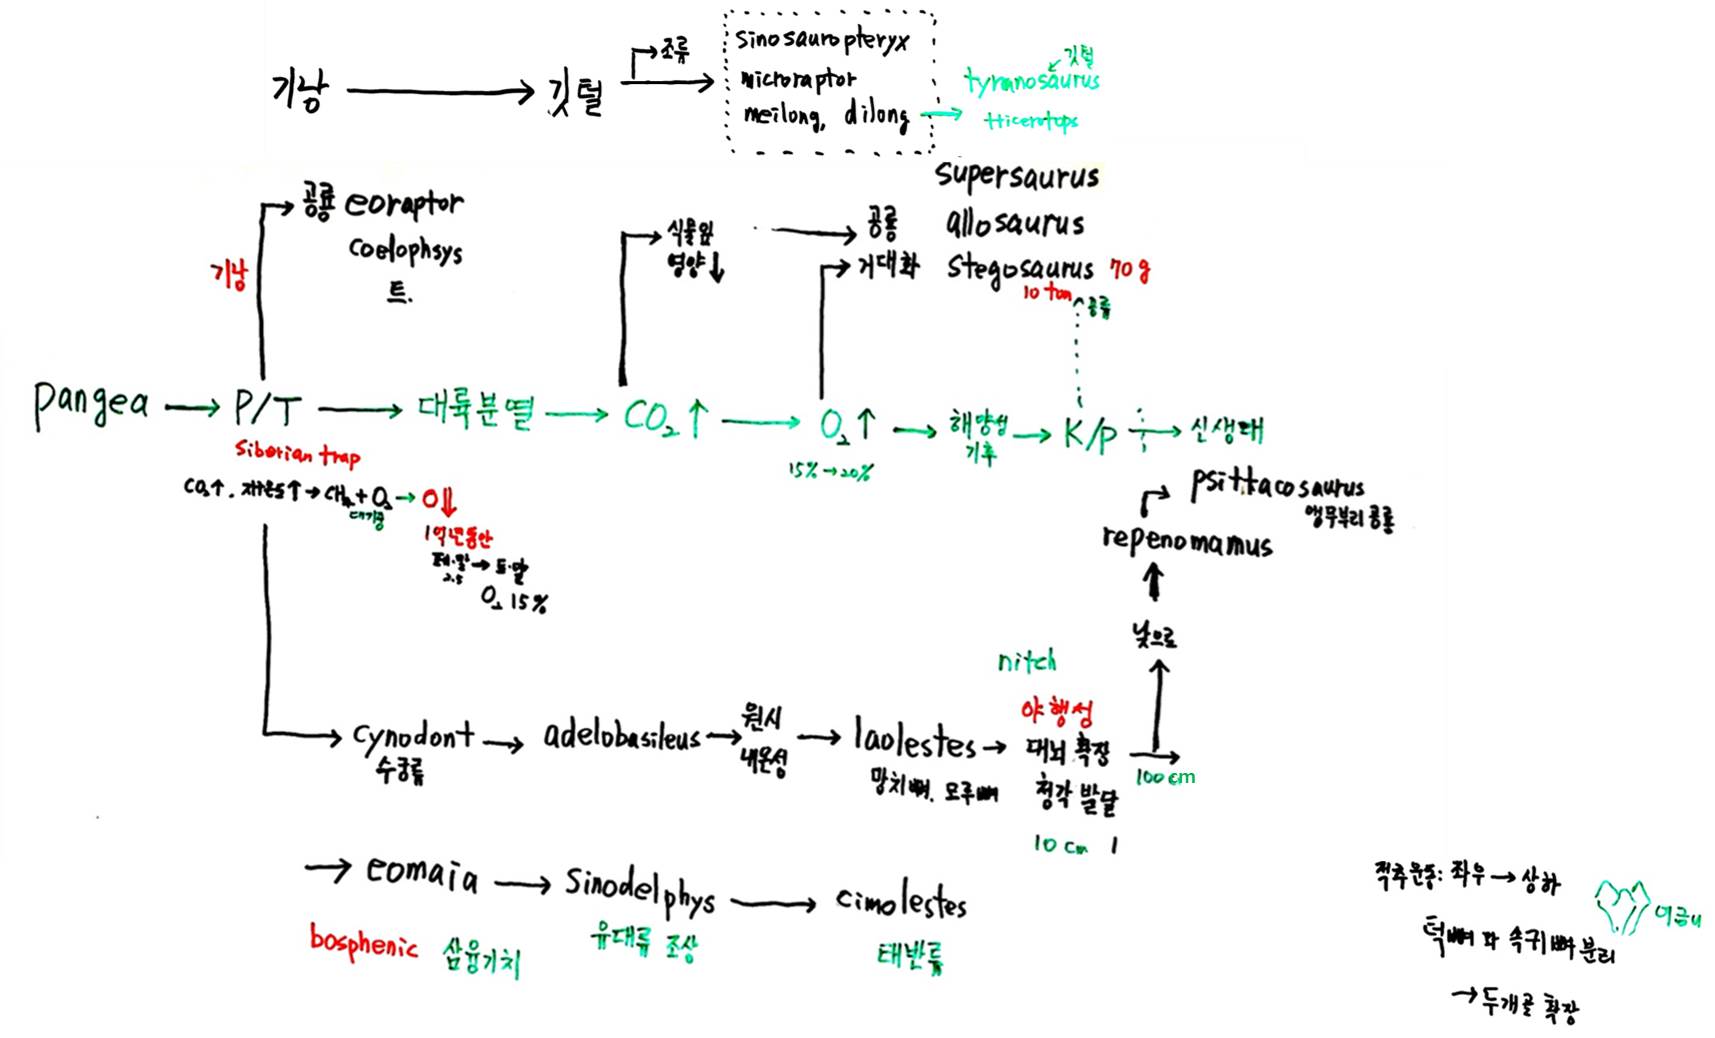 기낭 → 깃털 → 조류
sinosauropteryx
microraptor
meilong, dilong →
깃털
tyrannosaurus
triceratops
공룡 eoraptor
coelophsys
트.
기낭
식물잎
영양↓
→ 공룡
거대화
supersaurus
allosaurus
stegosaurus 70g
10 ton
공룡
pangea → P/T → 대륙분열 → CO₂↑ → O₂↑ → 해양성 기후 → K/P → 신생대
15%→20%
Siberian trap
CO₂↑. 지온↑→CH₄+O₂→O↓
대기중
1억년동안
페.말→트.말
2.5
O₂ 15%
psittacosaurus
앵무부리공룡
repenomamus
낮으로
nitch
cynodont → adelobasileus → 원시 내온성 → laolestes → 야행성
수궁류
망치뼈. 모루뼈
대뇌 확장
청각 발달
10 cm
100 cm
→ eomaia → Sinodelphys → cimolestes
bosphenic 삼융기치
유대류 조상
태반류
척추운동: 좌우→상하
어금니
턱뼈와 속귀뼈 분리
→두개골 확장